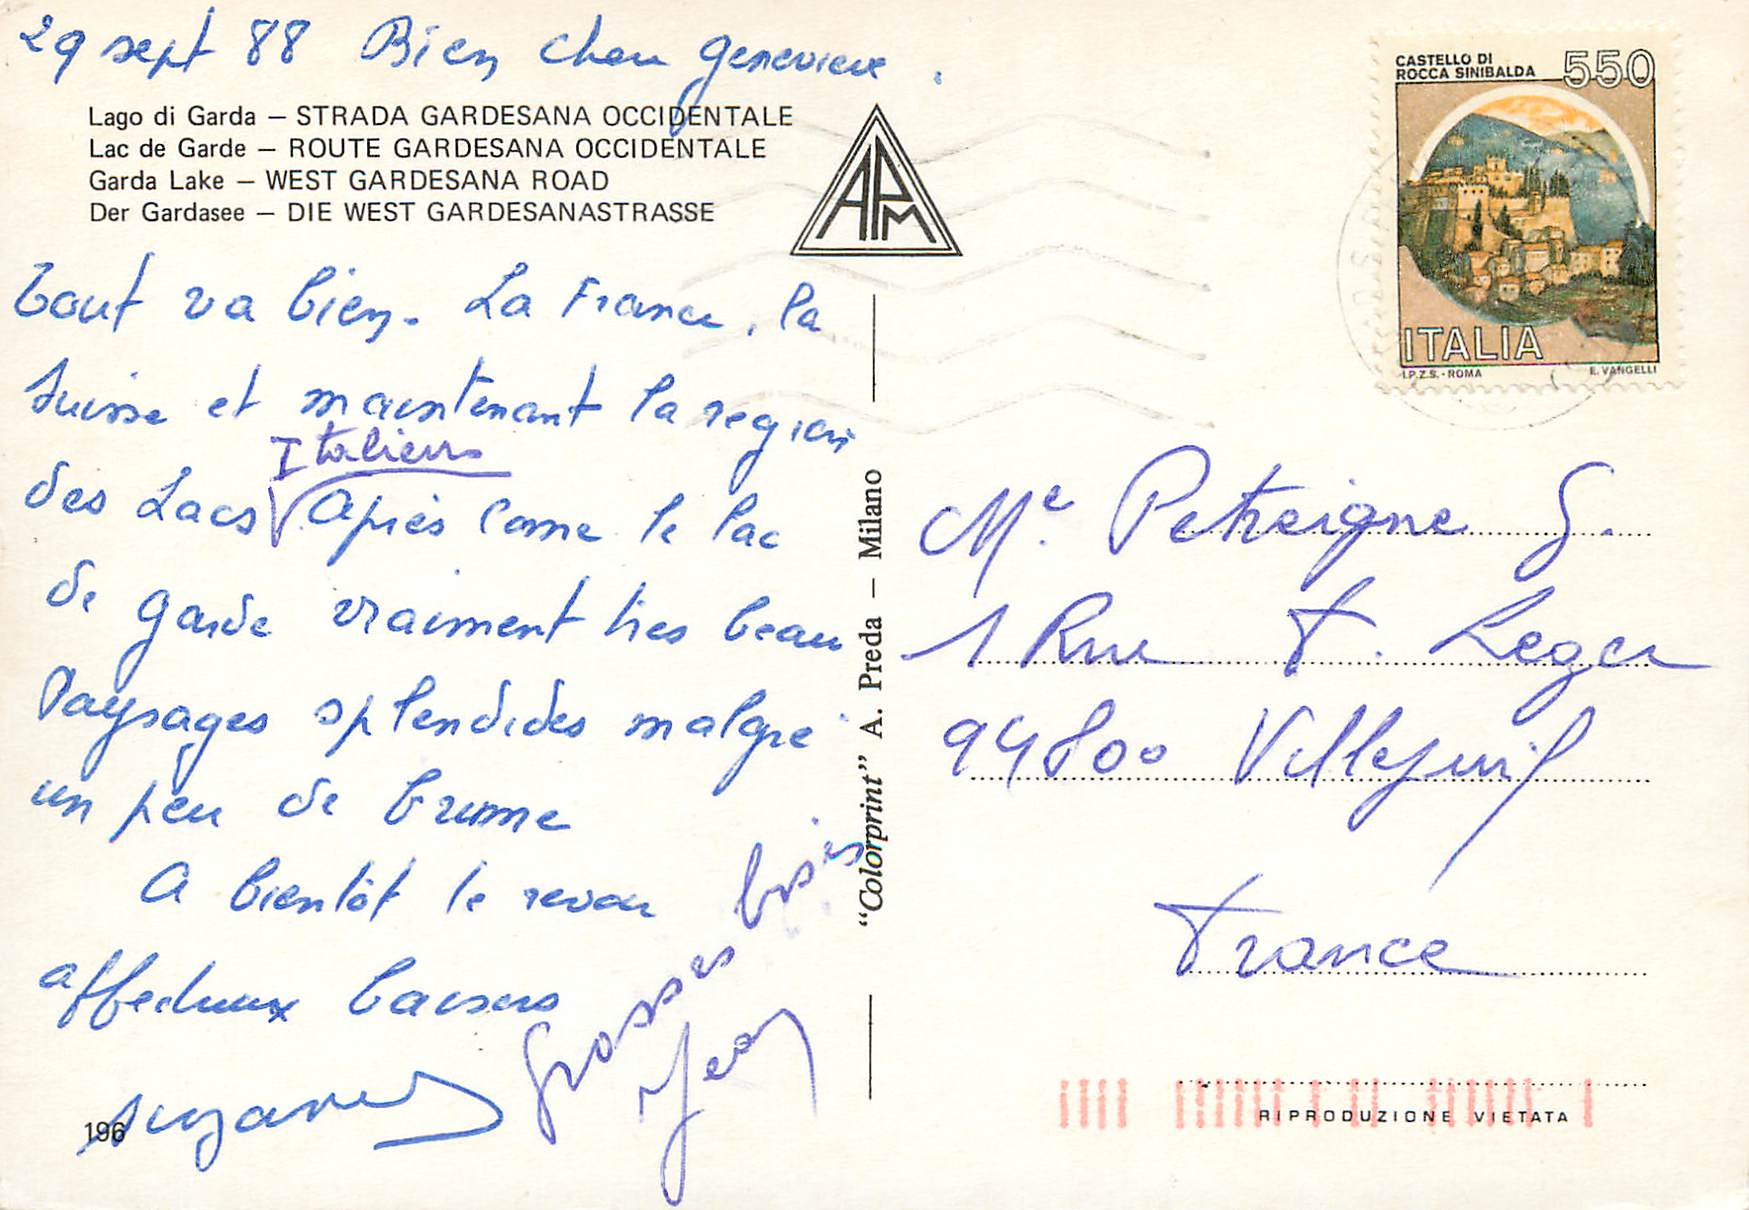 29 sept 88 Bien cher genevieve.
Lago di Garda – STRADA GARDESANA OCCIDENTALE
Lac de Garde – ROUTE GARDESANA OCCIDENTALE
Garda Lake – WEST GARDESANA ROAD
Der Gardasee – DIE WEST GARDESANASTRASSE
APM
Tout va bien. La France, la
Suisse et maintenant la region
Italiens
des Lacs V. Après Come le lac
de garde vraiment très beau
Paysages splendides malgré
un peu de brume
A bientôt le revoir
affectueux baisers
suzanne
Grosses bises
Jean
196
"Colorprint" A. Preda – Milano
CASTELLO DI
ROCCA SINIBALDA
550
ITALIA
I.P.Z.S. - ROMA
E. VANGELLI
Me. Petreigne G.
1 Rue F. Leger
94800 Villejuif
France
RIPRODUZIONE VIETATA